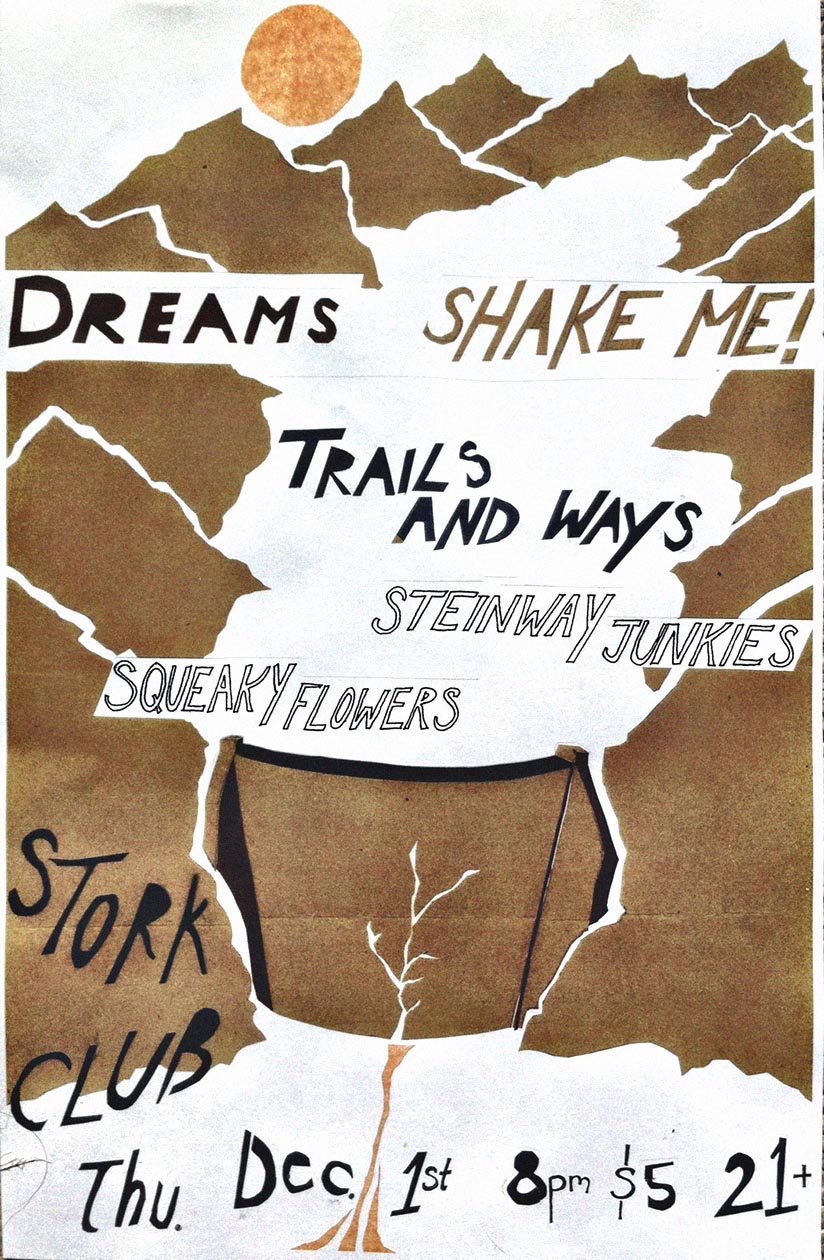 DREAMS SHAKE ME!
TRAILS
AND WAYS
STEINWAY JUNKIES
SQUEAKY FLOWERS
STORK
CLUB
Thu. Dec. 1st 8pm $5 21+